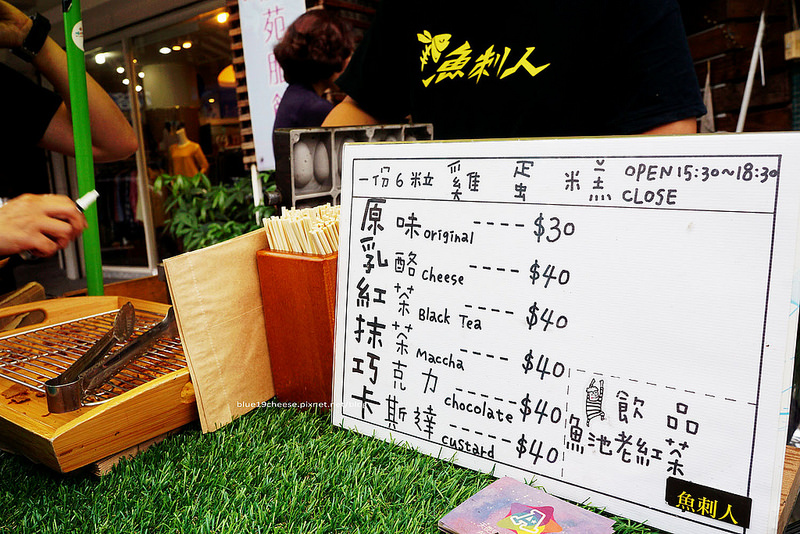 魚刺人
一份6粒 雞蛋米糕 OPEN 15:30~18:30
CLOSE
原味 original ---- $30
乳酪 cheese ---- $40
紅茶 Black Tea ---- $40
抹茶 Maccha ---- $40
巧克力 chocolate ---- $40
卡斯達 custard ---- $40
飲品
魚池老紅茶
魚刺人
blue19cheese.pixnet.net